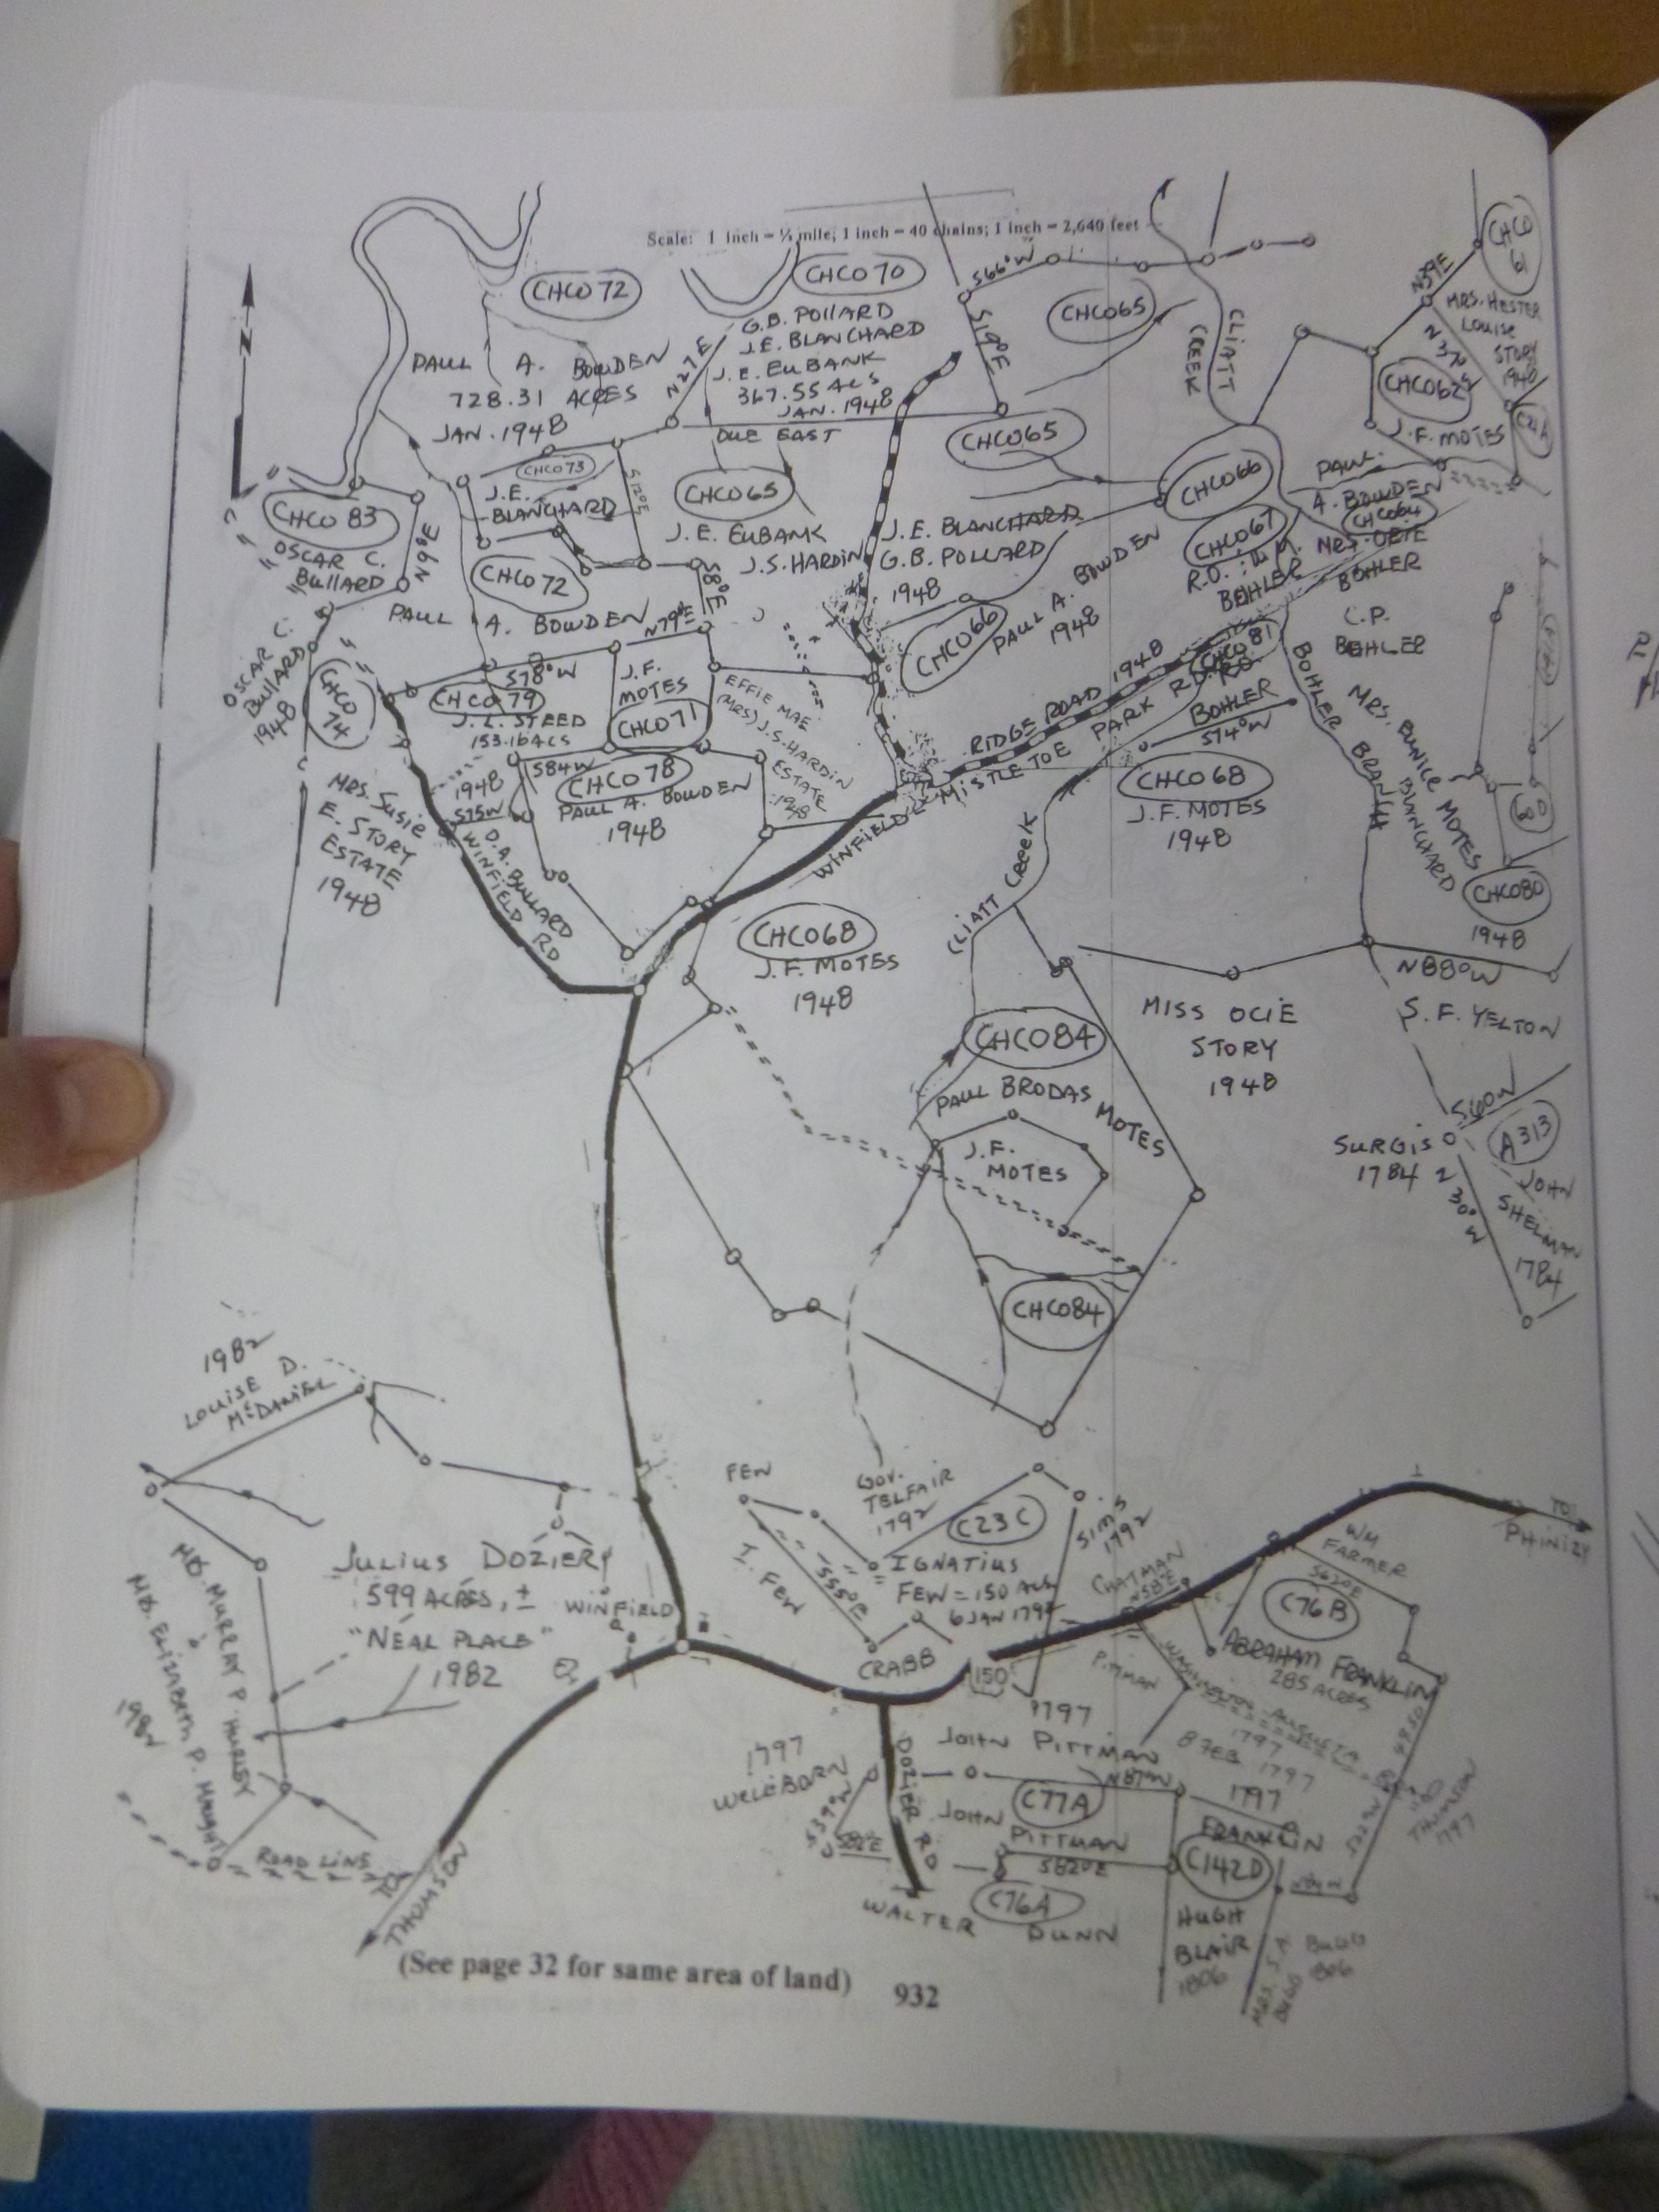 Scale: 1 inch = ½ mile; 1 inch = 40 chains; 1 inch = 2,640 feet
N
CHCO 72
PAUL A. BOWDEN
728.31 ACRES
JAN. 1948
CHCO 70
G.B. POLLARD
J.E. BLANCHARD
J.E. EUBANK
367.55 ACS
JAN. 1948
N27E
DUE EAST
S66°W
S19°E
CHCO65
CLIATT
CREEK
CHCO
61
N39E
MRS. HESTER
LOUISE
STORY
1948
N37W
CHCO62
J.F. MOTES
CHCO 73
J.E.
BLANCHARD
S12°E
CHCO65
J.E. EUBANK
J.S. HARDIN
CHCO65
J.E. BLANCHARD
G.B. POLLARD
1948
CHCO66
CHCO67
R.O. & W.M.
BOHLER
PAUL
A. BOWDEN
CHCO64
MRS. OBIE
BOHLER
CHCO 83
OSCAR C.
BULLARD
N9°E
CHCO 72
PAUL A. BOWDEN
N79°E
S8°E
CHCO66
PAUL A. BOWDEN
1948
C.P.
BOHLER
OSCAR C.
BULLARD
1948
CHCO
74
S78°W
CHCO 79
J.L. STEED
153.16 ACS
1948
J.F.
MOTES
CHCO71
EFFIE MAE
(MRS) J.S. HARDIN
ESTATE
1948
RIDGE ROAD 1948
MISTLETOE PARK RD.
CHCO 81
R.O.
BOHLER
S74°W
BOHLER BRANCH
MRS. EUNICE MOTES
BLANCHARD
CHCO80
1948
S84W
CHCO 78
PAUL A. BOWDEN
1948
S75W
O.A. BULLARD
WINFIELD RD
MRS. SUSIE
E. STORY
ESTATE
1948
WINFIELD
CHCO 68
J.F. MOTES
1948
CLIATT CREEK
CHCO68
J.F. MOTES
1948
N88°W
S.F. YELTON
MISS OCIE
STORY
1948
CHCO84
PAUL BRODAS MOTES
J.F.
MOTES
S60W
SURGIS
1784
A313
JOHN
SHELMAN
1784
N30°W
CHCO84
1982
LOUISE D.
McDANIEL
FEW
GOV.
TELFAIR
1792
C23C
SIMS
1792
I. FEW
S55°E
IGNATIUS
FEW = 150 ACS
6 JAN 179
JULIUS DOZIER
599 ACRES, ±
"NEAL PLACE"
1982
WINFIELD
CRABB
150
CHATMAN
N58°E
WM
FARMER
S62°E
C76B
ABRAHAM FRANKLIN
285 ACRES
TO
PHINIZY
MURRAY P. HURLEY
ELIZABETH P. KNIGHT
ROAD LINE
TO
THOMSON
PITMAN
WASHINGTON AUGUSTA
1797
1797
WELLBORN
S39°W
S82E
DOZIER RD
1797
JOHN PITTMAN
N87W
C77A
JOHN
PITTMAN
S82°E
1797
FRANKLIN
C142D
THOMSON
1797
C76A
WALTER DUNN
HUGH
BLAIR
1806
BUGG
1806
(See page 32 for same area of land)
932